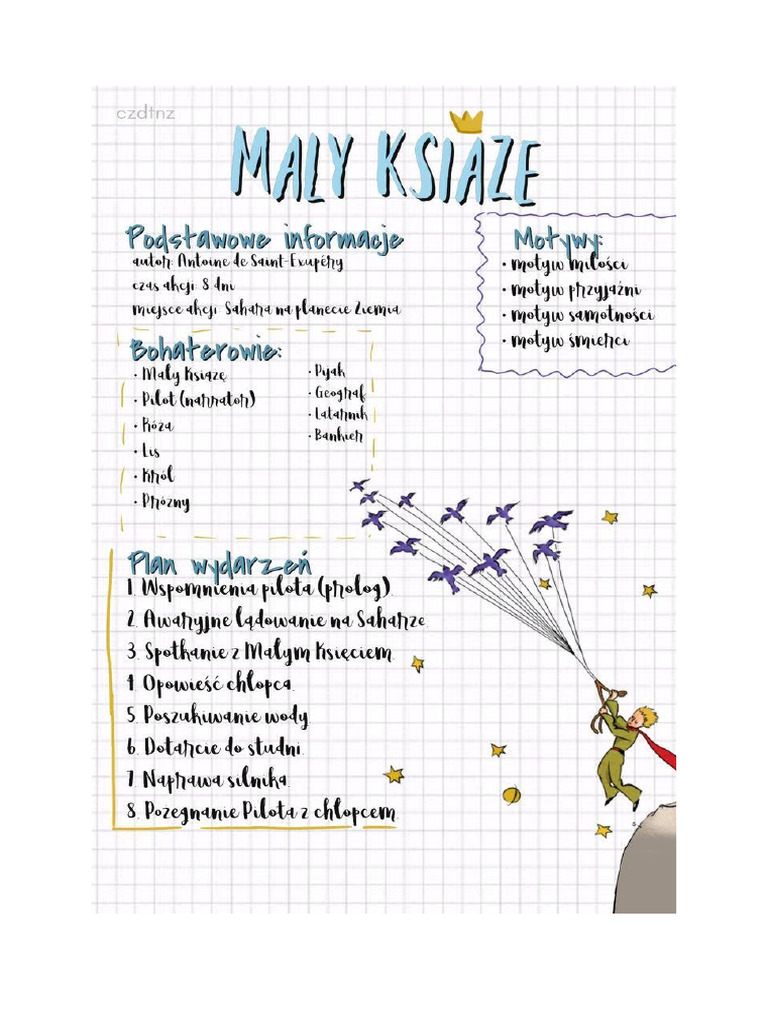 czdtnz
MALY KSIAZE
Podstawowe informacje
autor: Antoine de Saint-Exupéry
czas akcji: 8 dni
miejsce akcji: Sahara na planecie Ziemia
Motywy:
• motyw miłości
• motyw przyjaźni
• motyw samotności
• motyw śmierci
Bohaterowie:
• Mały Książę
• Pilot (narrator)
• Róża
• Lis
• Król
• Próżny
• Pijak
• Geograf
• Latarnik
• Bankier
Plan wydarzeń
1. Wspomnienia pilota (prolog).
2. Awaryjne lądowanie na Saharze.
3. Spotkanie z Małym Księciem.
4. Opowieść chłopca.
5. Poszukiwanie wody.
6. Dotarcie do studni.
7. Naprawa silnika.
8. Pożegnanie Pilota z chłopcem.